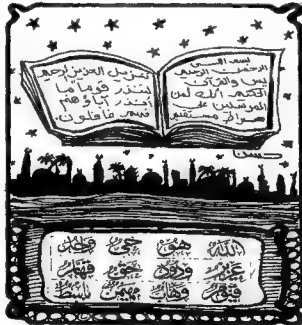 بسم الله
الرحمن الرحيم
يس والقرآن
الحكيم انك لمن
المرسلين على
صراط مستقيم
تنزيل العزيز الرحيم
لتنذر قوما ما
أنذر آباؤهم
فهم غافلون
الله هو حي واحد
عزيز ودود حق قهار
قيوم وهاب مهيمن باسط